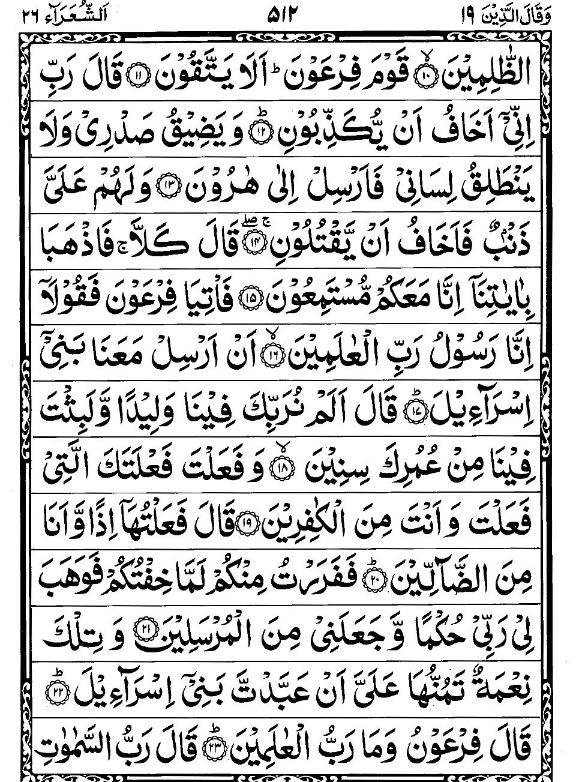 وَقَالَ الَّذِيْنَ ۱۹ ۵۱۲ اَلشُّعَرَآء ۲۶
الظّٰلِمِيْنَ ۙ﴿۱۰﴾ قَوْمَ فِرْعَوْنَ ؕ اَلَا يَتَّقُوْنَ ﴿۱۱﴾ قَالَ رَبِّ
اِنِّىْۤ اَخَافُ اَنْ يُّكَذِّبُوْنِ ؕ﴿۱۲﴾ وَ يَضِيْقُ صَدْرِىْ وَلَا
يَنْطَلِقُ لِسَانِىْ فَاَرْسِلْ اِلٰى هٰرُوْنَ ﴿۱۳﴾ وَ لَهُمْ عَلَىَّ
ذَنْۢبٌ فَاَخَافُ اَنْ يَّقْتُلُوْنِ ۚۖ﴿۱۴﴾ قَالَ كَلَّا ۚ فَاذْهَبَا
بِاٰيٰتِنَاۤ اِنَّا مَعَكُمْ مُّسْتَمِعُوْنَ ﴿۱۵﴾ فَاْتِيَا فِرْعَوْنَ فَقُوْلَاۤ
اِنَّا رَسُوْلُ رَبِّ الْعٰلَمِيْنَ ۙ﴿۱۶﴾ اَنْ اَرْسِلْ مَعَنَا بَنِىْۤ
اِسْرَآءِيْلَ ؕ﴿۱۷﴾ قَالَ اَلَمْ نُرَبِّكَ فِيْنَا وَلِيْدًا وَّ لَبِثْتَ
فِيْنَا مِنْ عُمُرِكَ سِنِيْنَ ۙ﴿۱۸﴾ وَ فَعَلْتَ فَعْلَتَكَ الَّتِىْ
فَعَلْتَ وَ اَنْتَ مِنَ الْكٰفِرِيْنَ ﴿۱۹﴾ قَالَ فَعَلْتُهَاۤ اِذًا وَّ اَنَا
مِنَ الضَّآلِّيْنَ ؕ﴿۲۰﴾ فَفَرَرْتُ مِنْكُمْ لَمَّا خِفْتُكُمْ فَوَهَبَ
لِىْ رَبِّىْ حُكْمًا وَّ جَعَلَنِىْ مِنَ الْمُرْسَلِيْنَ ﴿۲۱﴾ وَ تِلْكَ
نِعْمَةٌ تَمُنُّهَا عَلَىَّ اَنْ عَبَّدْتَّ بَنِىْۤ اِسْرَآءِيْلَ ؕ﴿۲۲﴾
قَالَ فِرْعَوْنُ وَمَا رَبُّ الْعٰلَمِيْنَ ؕ﴿۲۳﴾ قَالَ رَبُّ السَّمٰوٰتِ